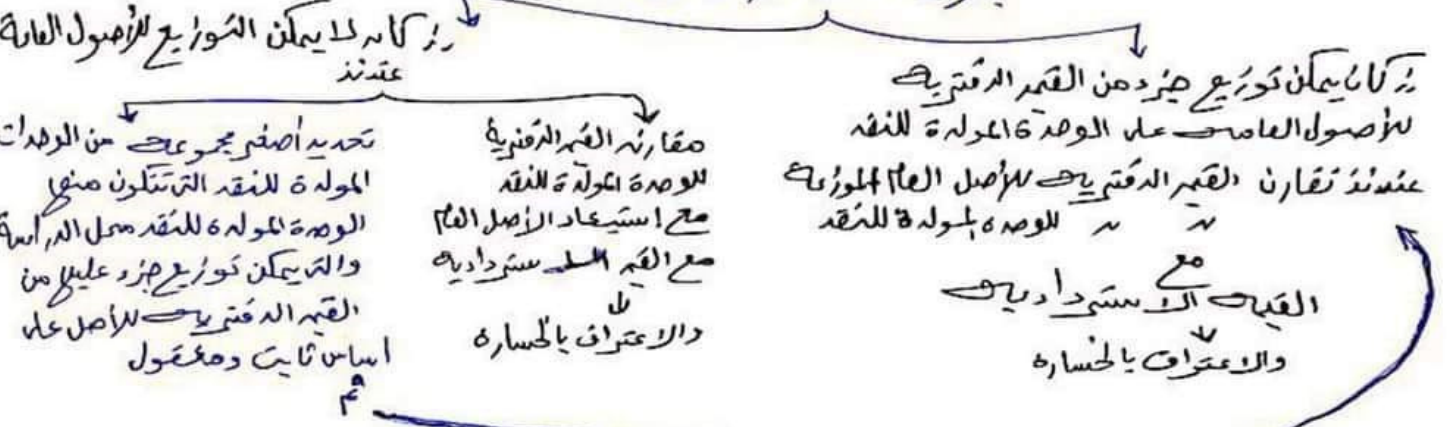 إذ كان يمكن توزيع جزء من القيمة الدفترية
للأصول العامة على الوحدة المولدة للنقد
عندئذ تقارن القيمة الدفترية للأصل العام الموزعة
" " للوحدة المولدة للنقد
مع
القيمة الاستردادية
والاعتراف بالخسارة
إذ كان لا يمكن التوزيع للأصول العامة
عندئذ
مقارنة القيمة الدفترية
للوحدة المولدة للنقد
مع استبعاد الأصل العام
مع القيمة الاستردادية
والاعتراف بالخسارة
تحديد أصغر مجموعة من الوحدات
المولدة للنقد التي تتكون منها
الوحدة المولدة للنقد محل الدراسة
والتي يمكن توزيع جزء عليها من
القيمة الدفترية للأصل على
أساس ثابت ومعقول
ثم